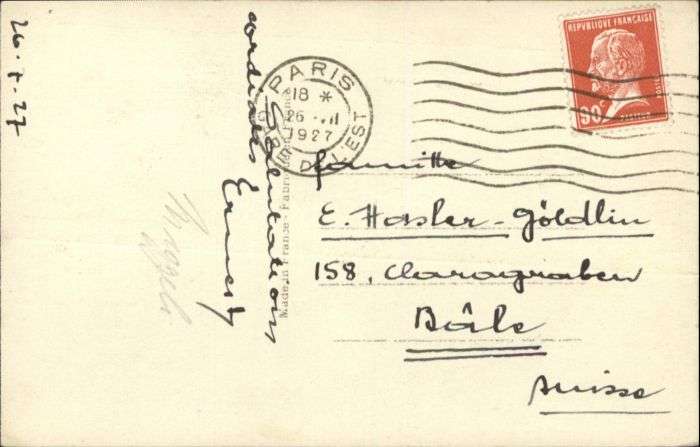 26.7.27
cordiales
Salutations
Ernest
Made in France - Fabriqué en France
PARIS
18 *
26 - VII
1927
GARE DE L'EST
REPUBLIQUE FRANÇAISE
POSTES
90c
famille
E. Hasler-Göldlin
158, Claragraben
Bâle
Suisse